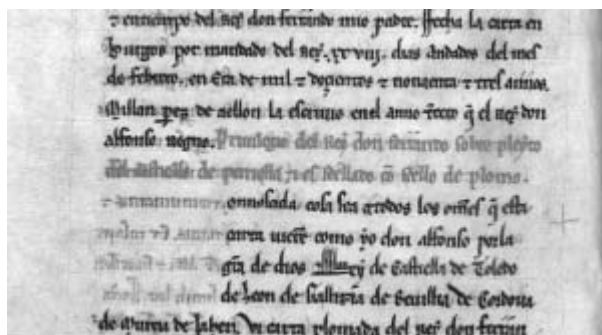 ⁊ en tiempo del Rey don ferrando mio padre. ffecha la carta en
burgos por mandado del Rey. xxviij. dias andados del mes
de febrero. en Era de mil ⁊ dozientos ⁊ nonaenta ⁊ tres annos.
Millan perez de aellon la escriuio en el anno t̃cero q̃ el Rey don
alfonso regno. Priuilegio del Rey don ferrando sobre pleyto
del castiello de ⁊ es seellado cõ seello de plomo.
connosçuda cosa sea a todos los om̃es q̃ esta
carta uierẽ como yo don alfonso por la
gr̃a de dios Rey de Castiella de Toledo
de Leon de Gallizia de Seuilla de Cordoua
de Murcia de Jahen. Vi carta plomada del Rey don ferrañ